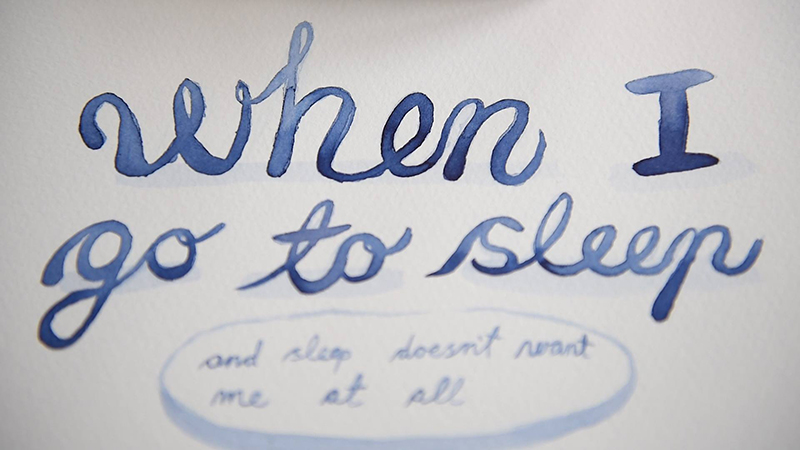 when I
go to sleep
and sleep doesn't want
me at all